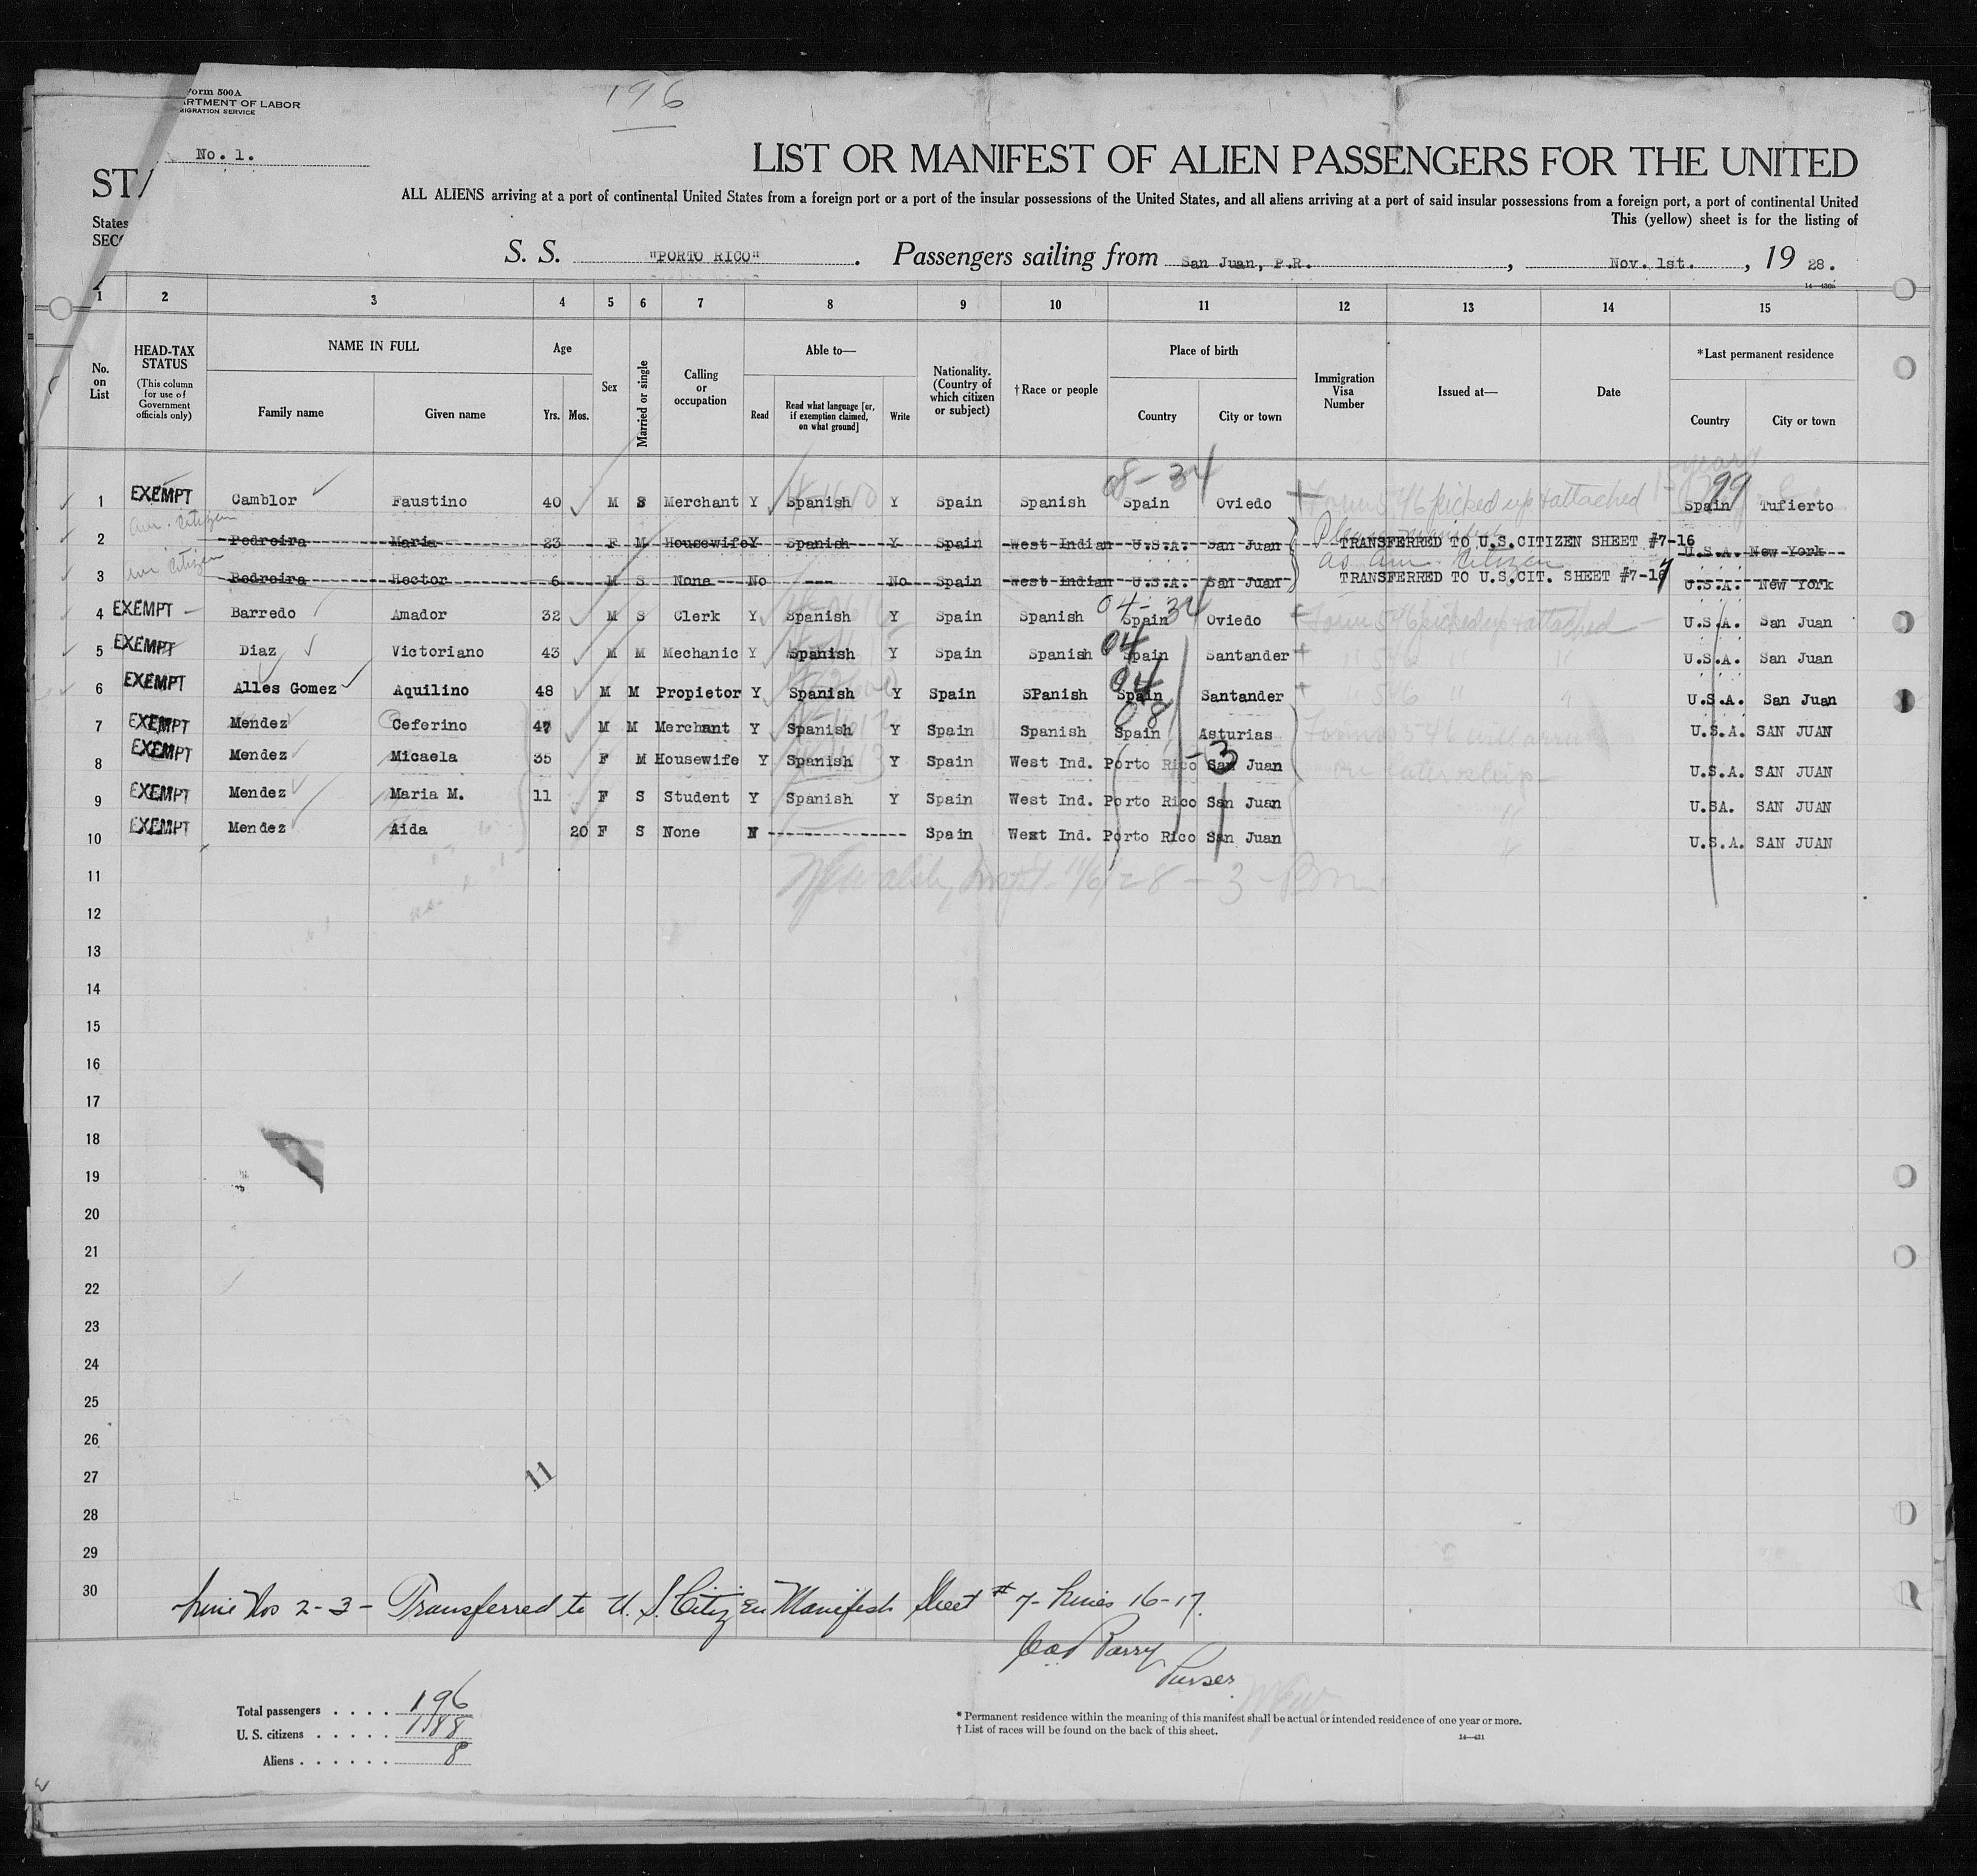 196
Form 500A
ARTMENT OF LABOR
MIGRATION SERVICE
No. 1.
LIST OR MANIFEST OF ALIEN PASSENGERS FOR THE UNITED
ST
ALL ALIENS arriving at a port of continental United States from a foreign port or a port of the insular possessions of the United States, and all aliens arriving at a port of said insular possessions from a foreign port, a port of continental United
States
This (yellow) sheet is for the listing of
SEC
S. S. "PORTO RICO". Passengers sailing from San Juan, P.R., Nov. 1st., 19 28.
1 2 3 4 5 6 7 8 9 10 11 12 13 14 15
No. on List
HEAD-TAX STATUS (This column for use of Government officials only)
NAME IN FULL
Family name Given name
Age
Yrs. Mos.
Sex
Married or single
Calling or occupation
Able to—
Read Read what language [or, if exemption claimed, on what ground] Write
Nationality. (Country of which citizen or subject)
†Race or people
Place of birth
Country City or town
Immigration Visa Number
Issued at—
Date
*Last permanent residence
Country City or town
1 EXEMPT Camblor Faustino 40 M S Merchant Y Spanish Y Spain Spanish 08-34 Spain Oviedo Form 546 picked up & attached Spain 99 Tufierto
2 Am. Citizen Pedroira Maria 23 F M Housewife Y Spanish Y Spain West Indian U.S.A. San Juan TRANSFERRED TO U.S.CITIZEN SHEET #7-16 U.S.A. New York
as Am. Citizen
3 Am Citizen Pedroira Hector 6 M S None No --- No Spain West Indian U.S.A. San Juan TRANSFERRED TO U.S.CIT. SHEET #7-17 U.S.A. New York
4 EXEMPT Barredo Amador 32 M S Clerk Y Spanish Y Spain Spanish 04-34 Spain Oviedo Form 546 picked up & attached U.S.A. San Juan
5 EXEMPT Diaz Victoriano 43 M M Mechanic Y Spanish Y Spain Spanish 04 Spain Santander " 546 " U.S.A. San Juan
6 EXEMPT Alles Gomez Aquilino 48 M M Propietor Y Spanish Y Spain SPanish 04 Spain Santander " 546 " U.S.A. San Juan
7 EXEMPT Mendez Ceferino 47 M M Merchant Y Spanish Y Spain Spanish 08 Spain Asturias Forms 546 will arrive U.S.A. SAN JUAN
8 EXEMPT Mendez Micaela 35 F M Housewife Y Spanish Y Spain West Ind. Porto Rico -3 San Juan on later ship U.S.A. SAN JUAN
9 EXEMPT Mendez Maria M. 11 F S Student Y Spanish Y Spain West Ind. Porto Rico San Juan " U.SA. SAN JUAN
10 EXEMPT Mendez Aida 20 F S None N ------------- Spain West Ind. Porto Rico San Juan " U.S.A. SAN JUAN
11
12
13
14
15
16
17
18
19
20
21
22
23
24
25
26
27
11
28
29
30
Line Nos 2-3 - Transferred to U. S. Citizen Manifest Sheet # 7- Lines 16-17.
Parry
Purser
Total passengers . . . . 196
U. S. citizens . . . . . 188
Aliens . . . . . . 8
* Permanent residence within the meaning of this manifest shall be actual or intended residence of one year or more.
† List of races will be found on the back of this sheet.
14—431